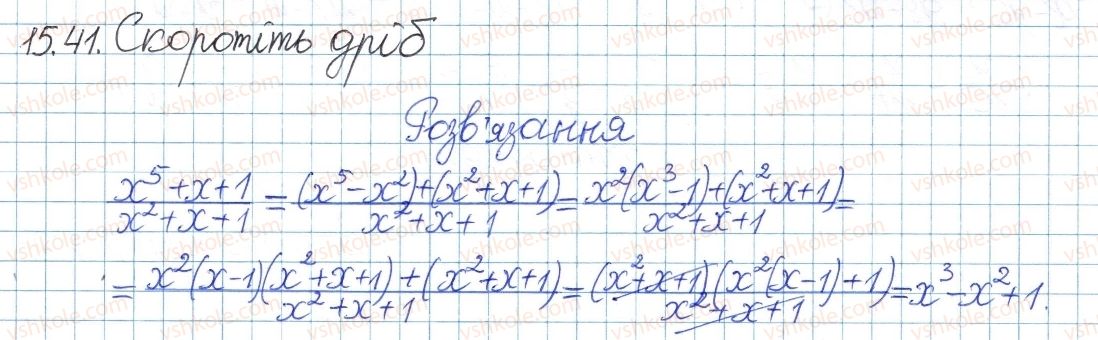 15.41. Скоротіть дріб
Розв'язання
(x^5+x+1)/(x^2+x+1) = ((x^5-x^2)+(x^2+x+1))/(x^2+x+1) = (x^2(x^3-1)+(x^2+x+1))/(x^2+x+1) =
= (x^2(x-1)(x^2+x+1)+(x^2+x+1))/(x^2+x+1) = ((x^2+x+1)(x^2(x-1)+1))/(x^2+x+1) = x^3-x^2+1.
vshkole.com